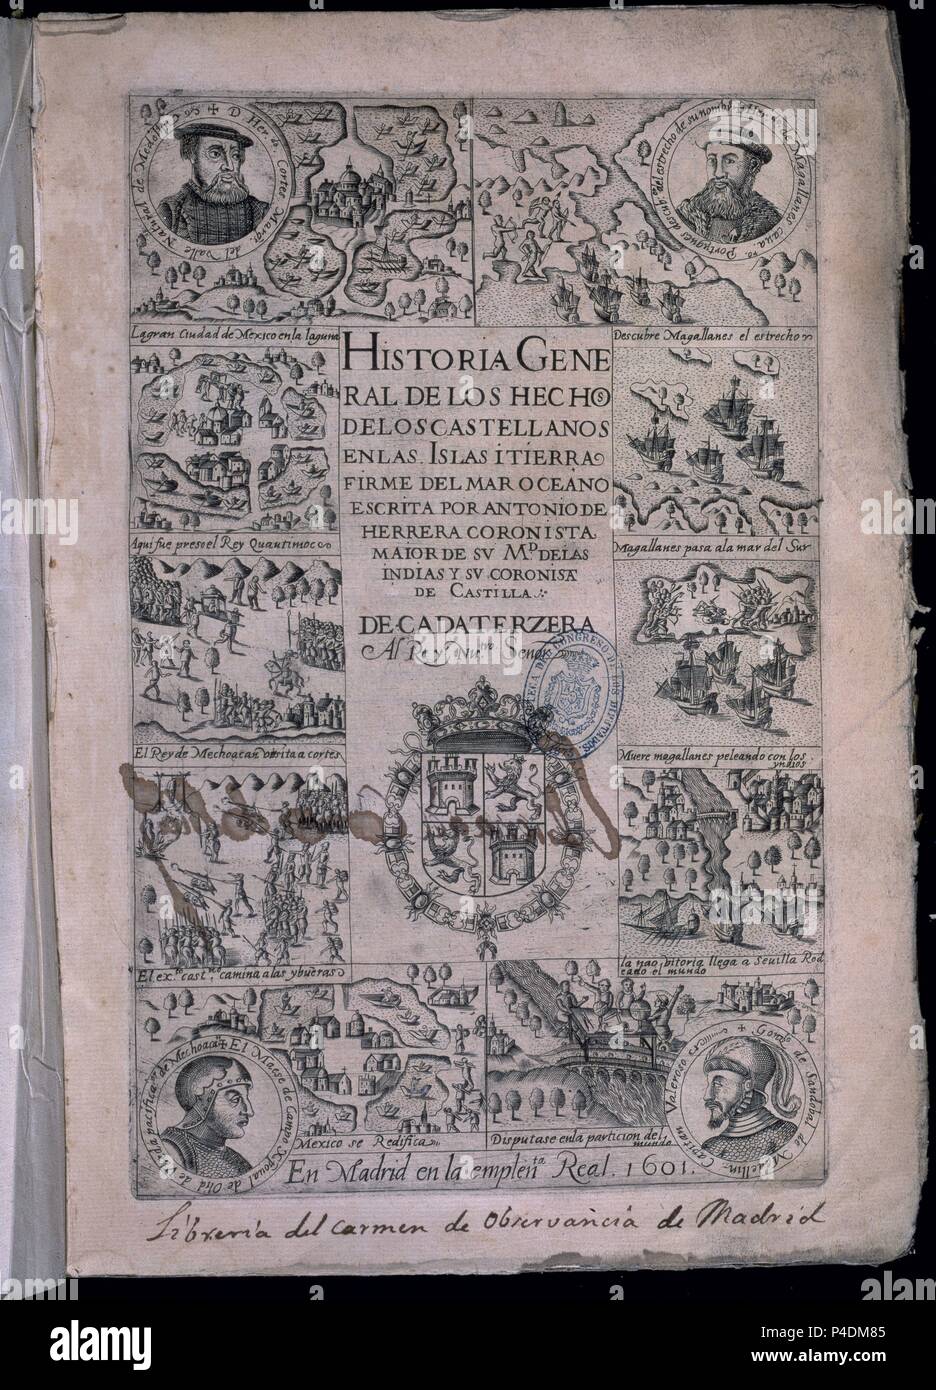 ✠ D. Her.do Cortes Marq. del Valle Natural de Medellin
Estrecho de Magallanes
Portugues descubr. del estrecho de su nombre
La gran Ciudad de Mexico en la laguna
Descubre Magallanes el estrecho
HISTORIA GENE
RAL DE LOS HECHOS
DE LOS CASTELLANOS
EN LAS ISLAS I TIERRA
FIRME DEL MAR OCEANO
ESCRITA POR ANTONIO DE
HERRERA CORONISTA
MAIOR DE SV M.D DE LAS
INDIAS Y SV CORONISTA
DE CASTILLA
DECADA TERZERA
Al Rey Nu.ro Senor
Aqui fue preso el Rey Quautimoc
Magallanes pasa ala mar del Sur
El Rey de Mechoacan visita a cortes
Muere magallanes peleando con los
yndios
El ex.to cast.no camina a las ybueras
la nao bitoria llega a Sevilla Rod
eando el mundo
Mexico se Redifica
Disputase en la particion del
mundo
✠ El Maese de Campo Xpoual de Olid
pacifica
de Mechoacã
Valeroso
Capitan
✠ Gonz.lo de Sandobal de Medellin
En Madrid en la emplen.ta Real. 1601.
Libreria del Carmen de Observancia de Madrid
alamy
P4DM85
www.alamy.com